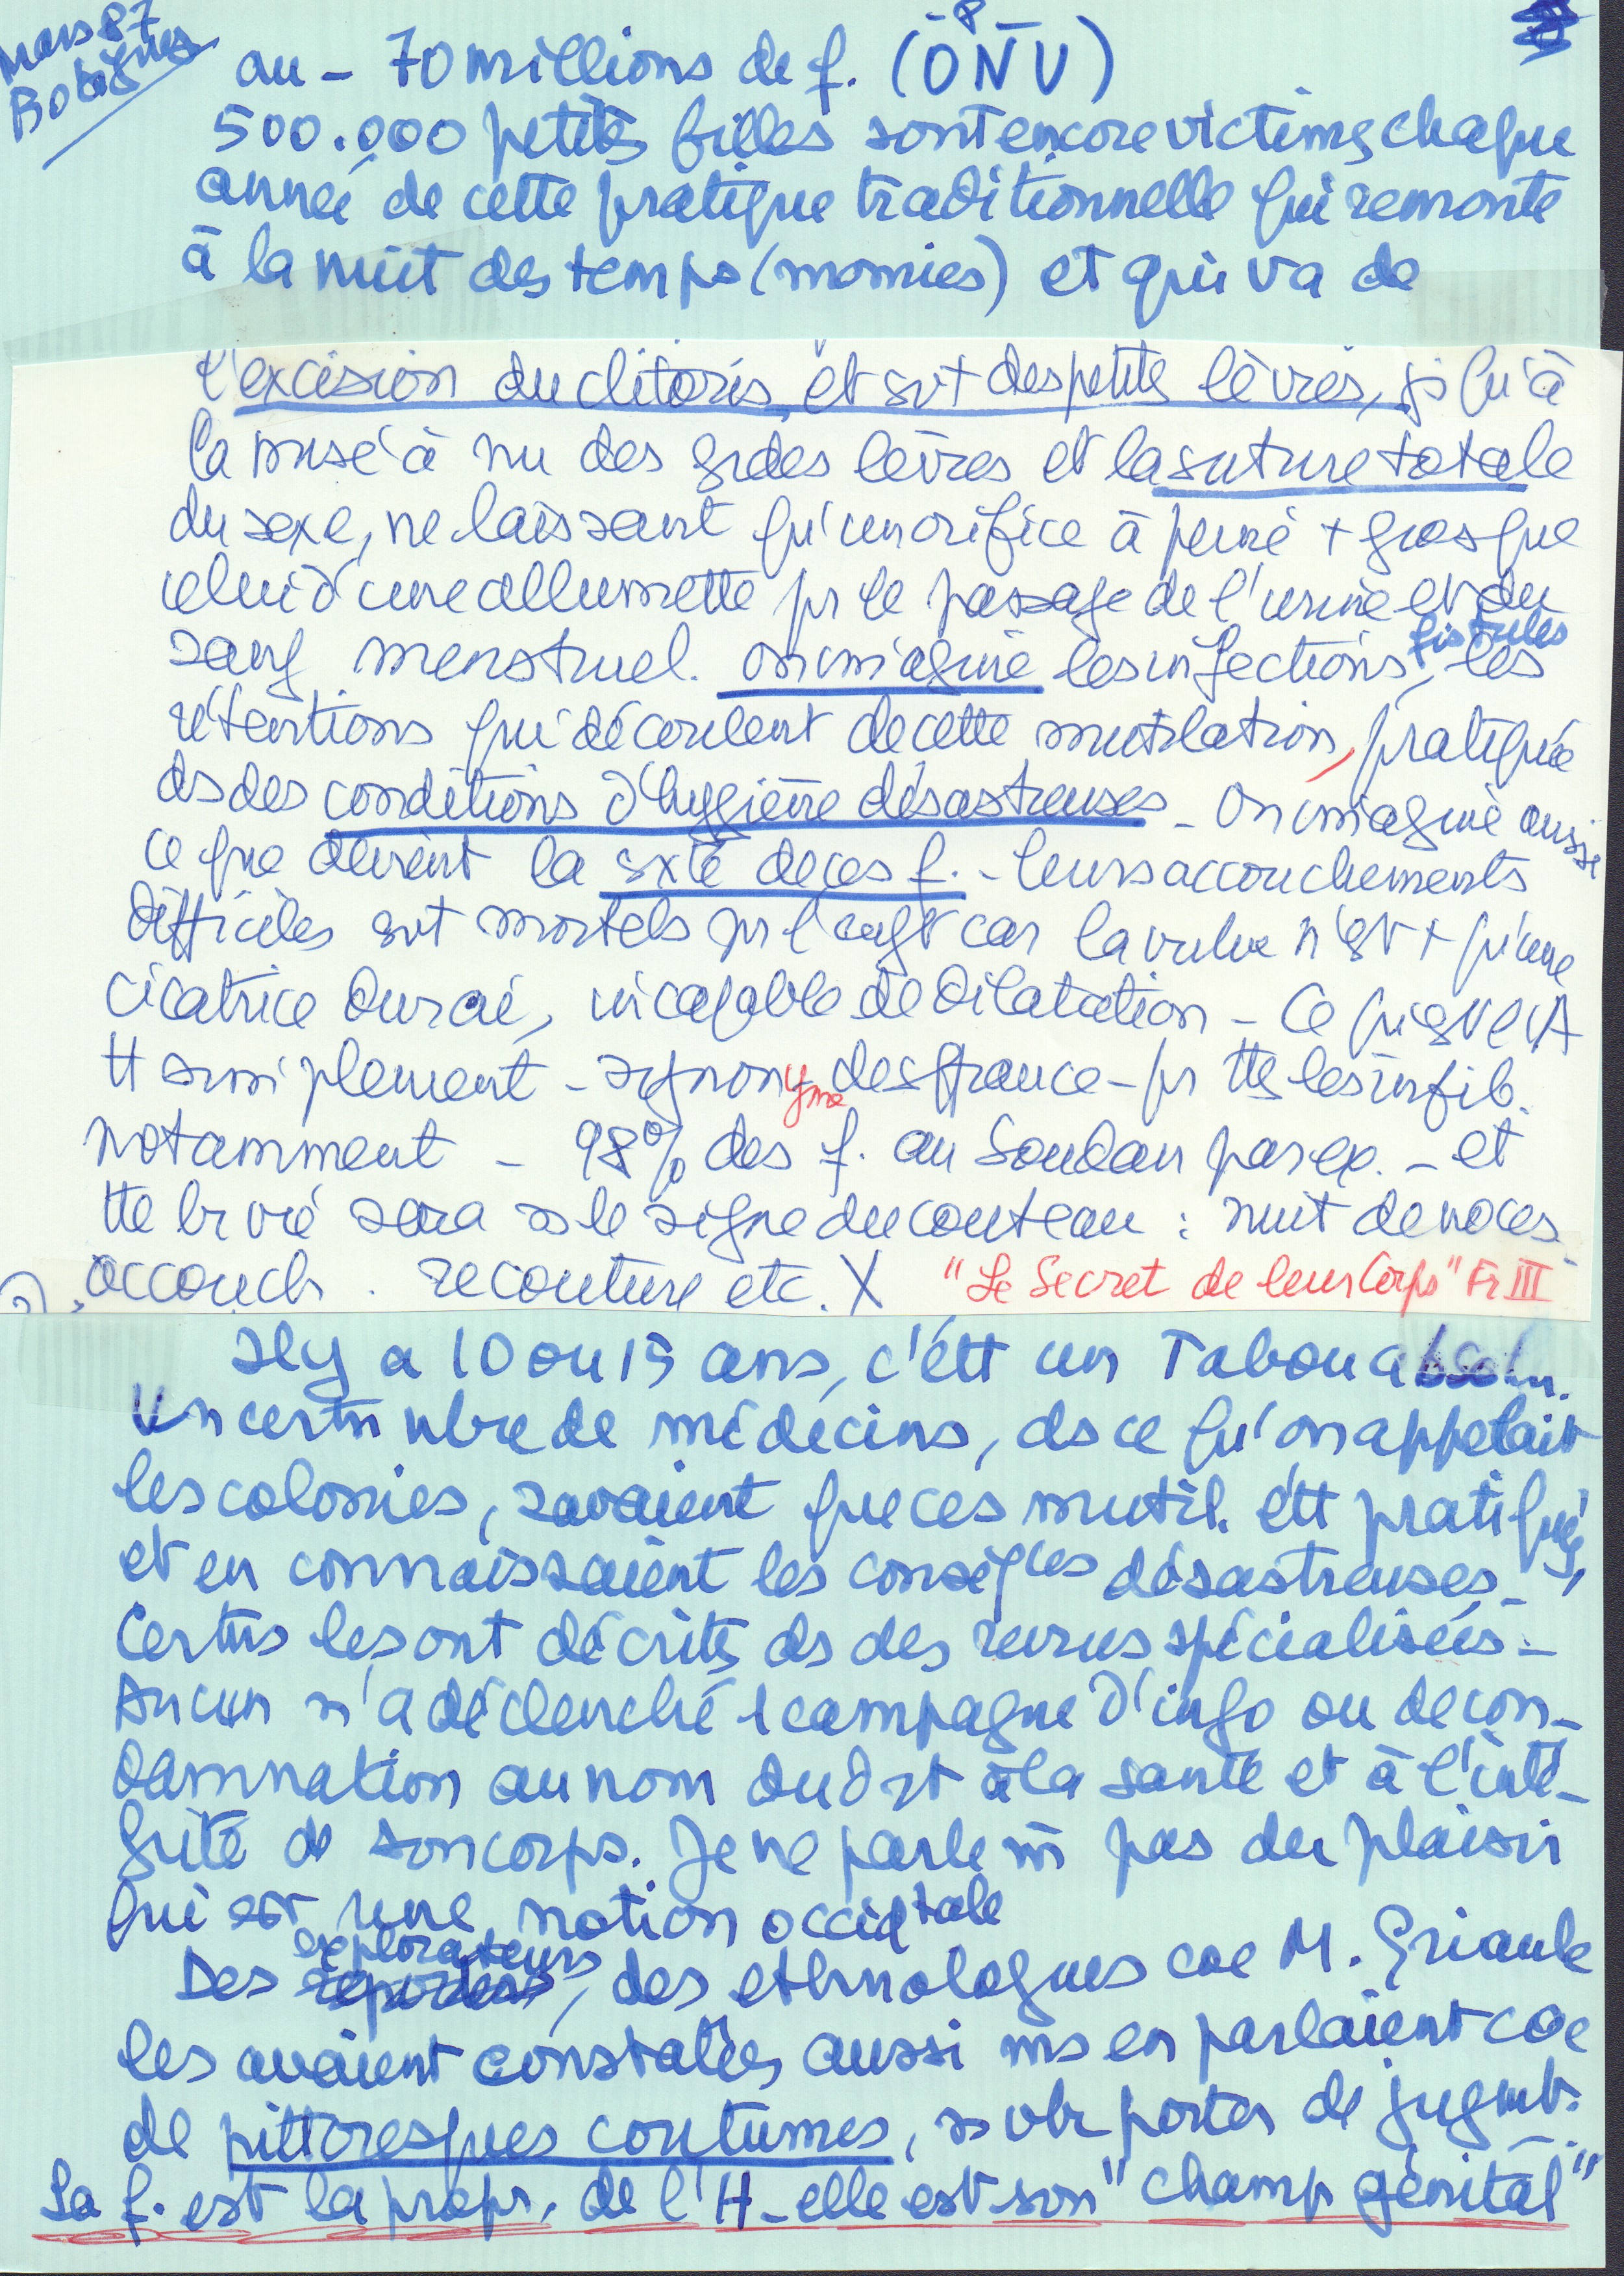 mars 87
Bobignes
au – 70 millions de f. (ONU)
500.000 petites filles sont encore victimes chaque
année de cette pratique traditionnelle qui remonte
à la nuit des temps (momies) et qui va de
l'excision du clitoris, et svt des petites lèvres, jsqu'à
la mise à nu des grdes lèvres et la suture totale
du sexe, ne laissant qu'un orifice à peine + gros que
celui d'une allumette pr le passage de l'urine et du
sang menstruel. on imagine les infections, fistules les
rétentions qui découlent de cette mutilation, pratiquée
ds des conditions d'hygiène désastreuses – On imagine aussi
ce que devient la sxté de ces f. – leurs accouchements
difficiles svt mortels pr l'enft car la vulve n'est + qu'une
cicatrice durcie, incapable de dilatation – Ce qui est
tt simplement – synonyme de souffrance – pr ttes les infib.
notamment – 98% des f. au Soudan par ex. – et
tte lr vie sera ss le signe du couteau : nuit de noces
accouch. recouture etc. X "Le Secret de leur Corps" Fr III
Il y a 10 ou 15 ans, c'étt un Tabou absolu.
Un certn nbre de médecins, ds ce qu'on appelait
les colonies, savaient que ces mutil. étt pratiquées,
et en connaissaient les conséqces désastreuses –
Certns les ont décrites ds des revues spécialisées –
Aucun n'a déclenché 1 campagne d'info ou de con–
damnation au nom du drt à la santé et à l'inté–
grité de son corps. Je ne parle m̂ pas du plaisir
qui est une notion occidtale
Des explorateurs, des ethnologues coe M. Griaule
les avaient constatées aussi ms en parlaient coe
de pittoresques coutumes, ss vlr porter de jugmt.
La f. est la propr. de l'H – elle est son "champ génital"